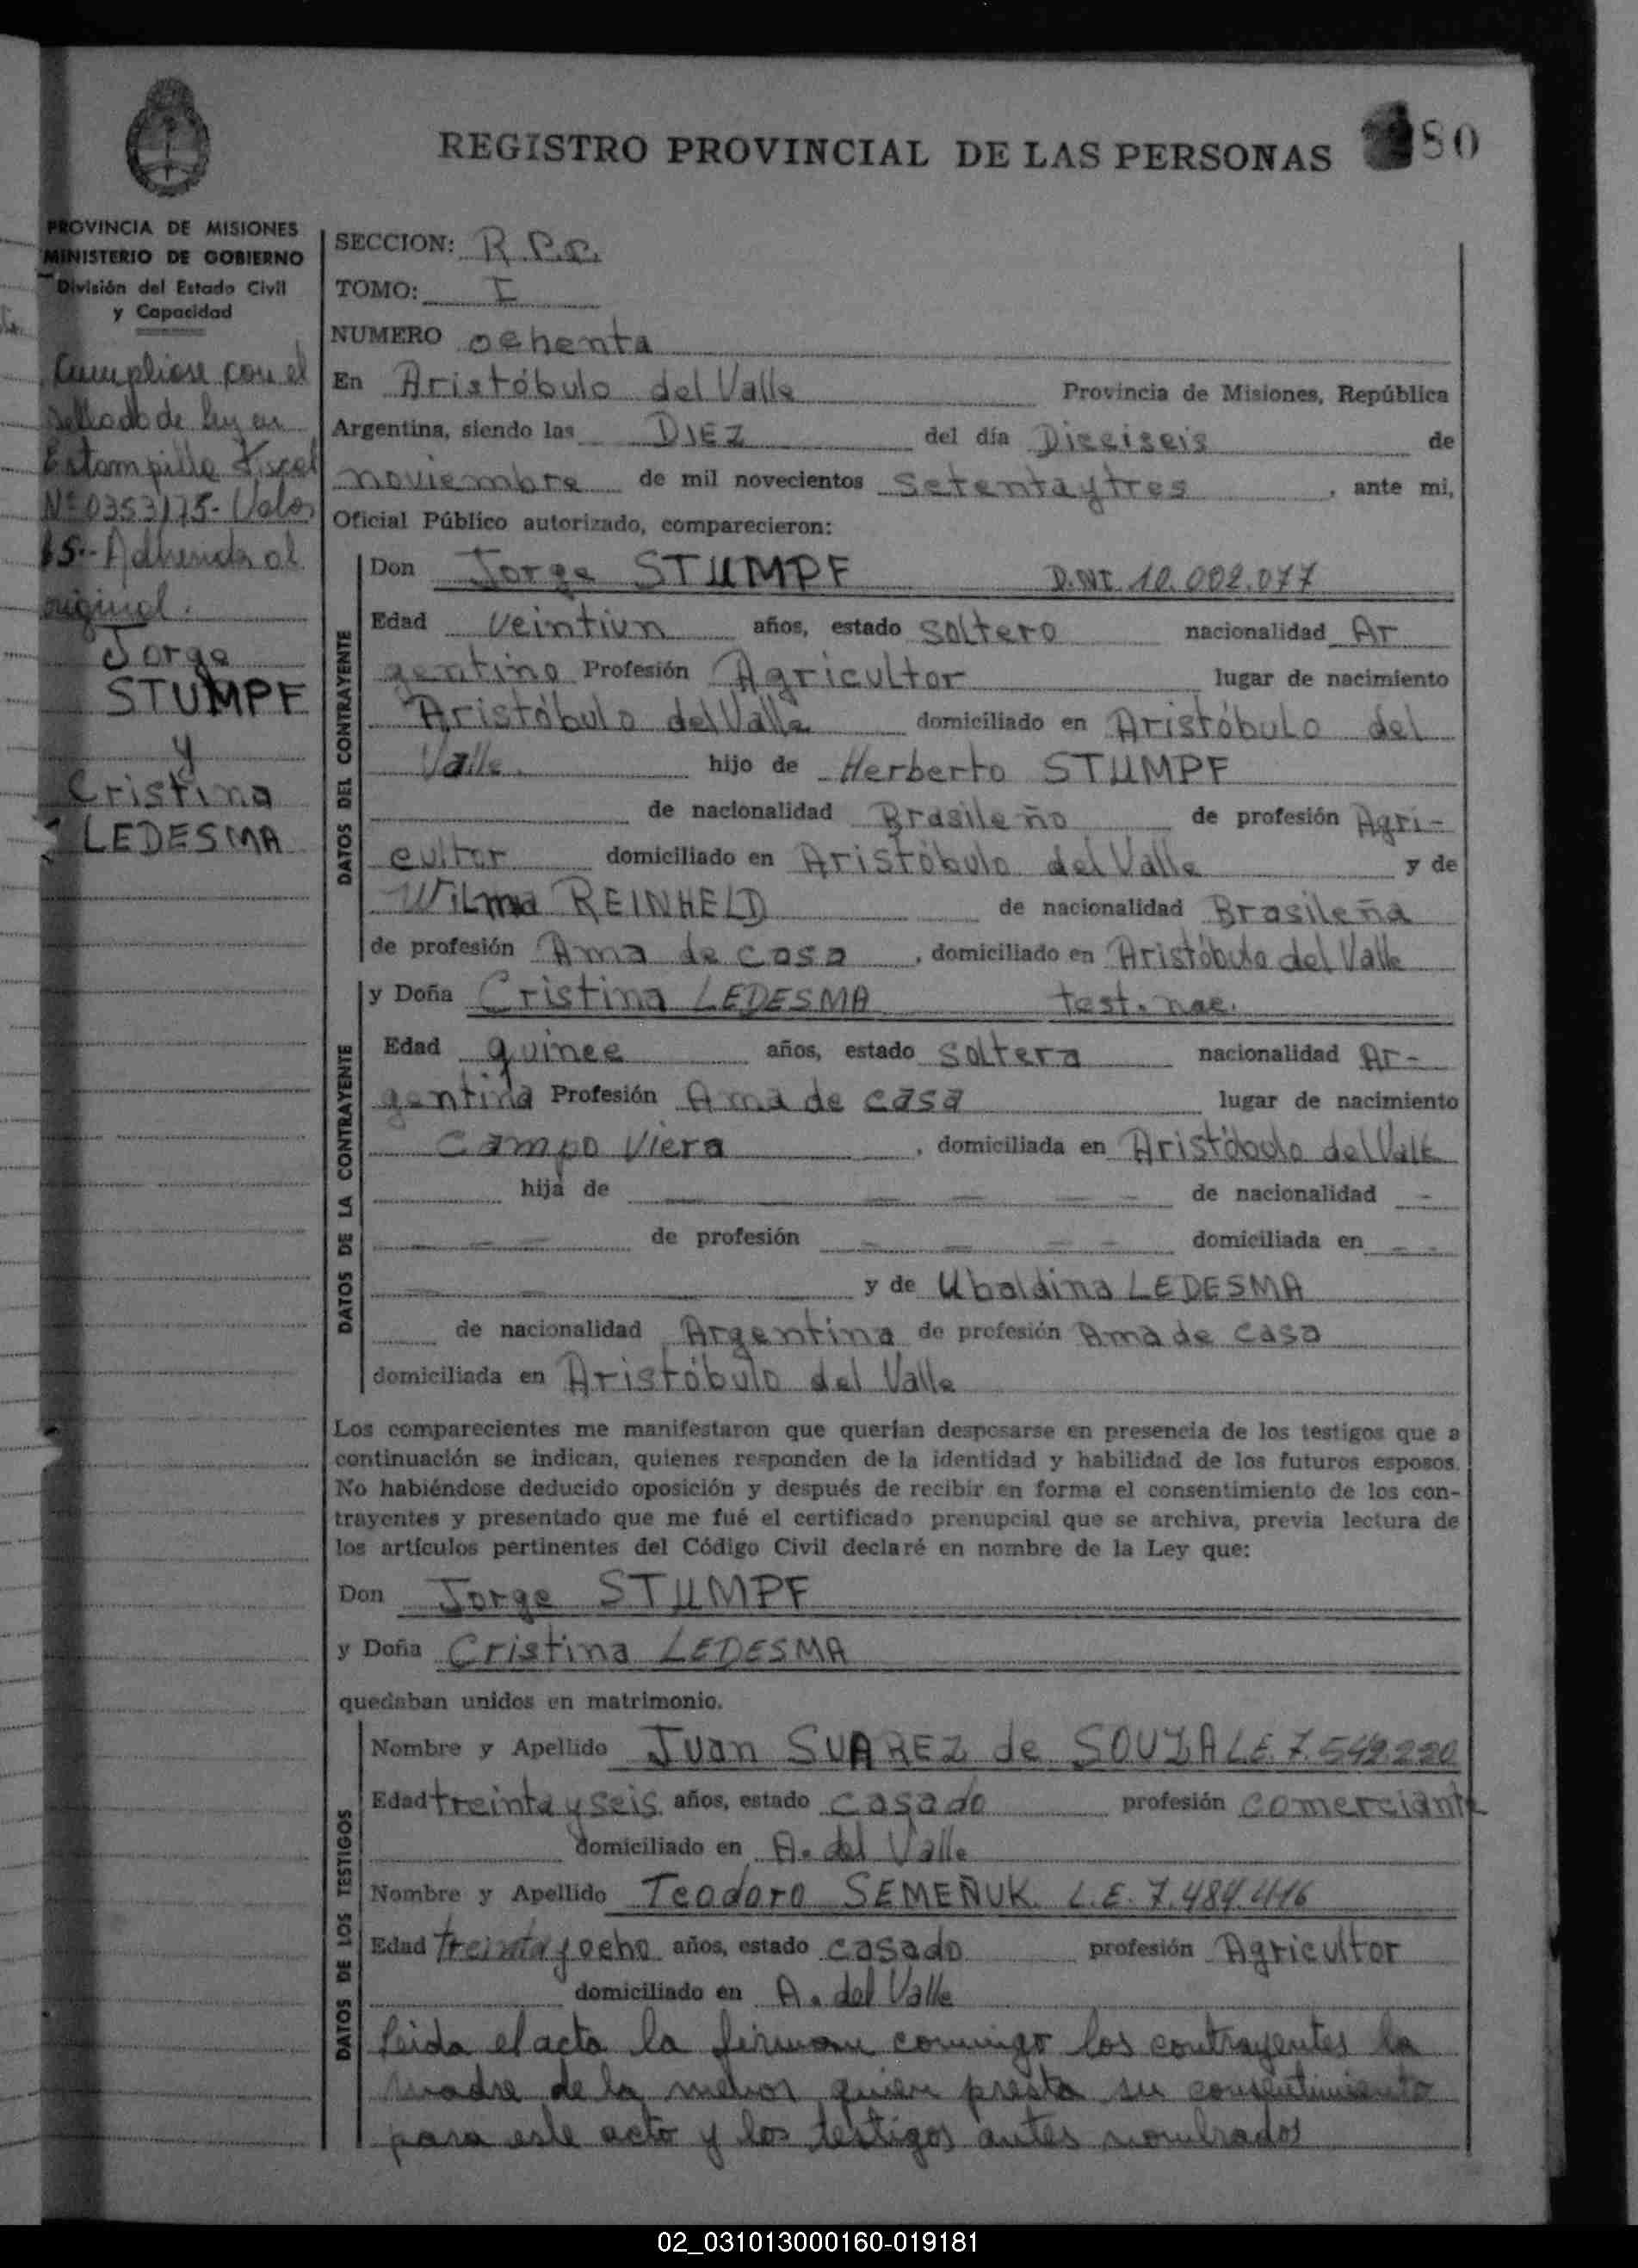 REGISTRO PROVINCIAL DE LAS PERSONAS
80
PROVINCIA DE MISIONES
MINISTERIO DE GOBIERNO
División del Estado Civil
y Capacidad
Cumpliose con el
sellado de ley en
Estampilla Fiscal
Nº 0353175- Valor
$5.- Adherida al
original.
Jorge
STUMPF
y
Cristina
LEDESMA
SECCION: R.P.P.
TOMO: I
NUMERO ochenta
En Aristóbulo del Valle Provincia de Misiones, República
Argentina, siendo las DIEZ del día Dieciseis de
noviembre de mil novecientos setentaytres, ante mi,
Oficial Público autorizado, comparecieron:
DATOS DEL CONTRAYENTE
Don Jorge STUMPF D.N.I. 10.002.077
Edad veintiun años, estado soltero nacionalidad Ar
gentino Profesión Agricultor lugar de nacimiento
Aristóbulo del Valle domiciliado en Aristóbulo del
Valle. hijo de Herberto STUMPF
de nacionalidad Brasileño de profesión Agri-
cultor domiciliado en Aristóbulo del Valle y de
Wilma REINHELD de nacionalidad Brasileña
de profesión Ama de casa, domiciliado en Aristóbulo del Valle
DATOS DE LA CONTRAYENTE
y Doña Cristina LEDESMA test. nac.
Edad quince años, estado soltera nacionalidad Ar-
gentina Profesión Ama de casa lugar de nacimiento
Campo Viera, domiciliada en Aristóbulo del Valle
hija de - - - - de nacionalidad -
- - - de profesión - - - - domiciliada en - -
y de Ubaldina LEDESMA
de nacionalidad Argentina de profesión Ama de casa
domiciliada en Aristóbulo del Valle
Los comparecientes me manifestaron que querían desposarse en presencia de los testigos que a
continuación se indican, quienes responden de la identidad y habilidad de los futuros esposos.
No habiéndose deducido oposición y después de recibir en forma el consentimiento de los con-
trayentes y presentado que me fué el certificado prenupcial que se archiva, previa lectura de
los artículos pertinentes del Código Civil declaré en nombre de la Ley que:
Don Jorge STUMPF
y Doña Cristina LEDESMA
quedaban unidos en matrimonio.
DATOS DE LOS TESTIGOS
Nombre y Apellido Juan SUAREZ de SOUZA L.E. 7.549.220
Edad treinta y seis años, estado casado profesión comerciante
domiciliado en A. del Valle
Nombre y Apellido Teodoro SEMEÑUK L.E. 7.484.416
Edad treinta y ocho años, estado casado profesión Agricultor
domiciliado en A. del Valle
Leida el acta la firman conmigo los contrayentes la
madre de la menor quien presta su consentimiento
para este acto y los testigos antes nombrados
02_031013000160-019181